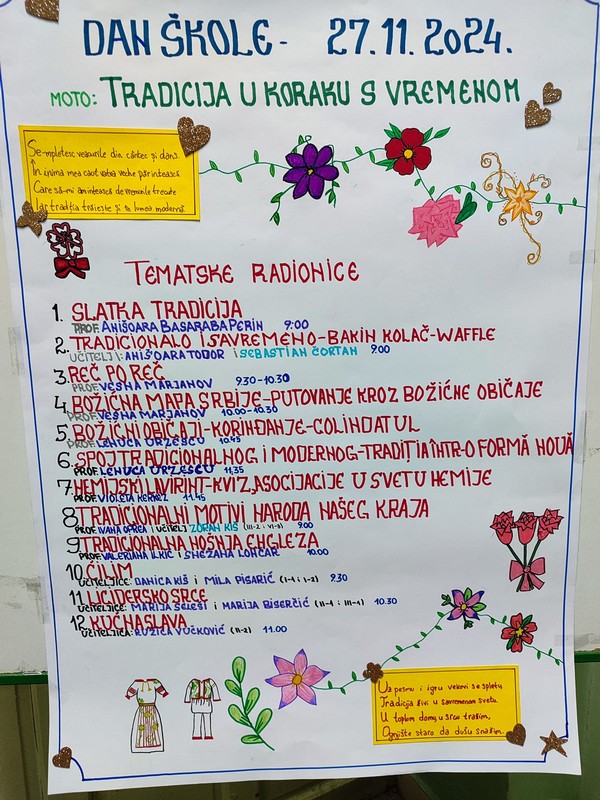 DAN ŠKOLE - 27.11.2024.
MOTO: TRADICIJA U KORAKU S VREMENOM
Se-mpletesc veacurile din cântec și dans.
În inima mea caut vatra veche părintească
Care să-mi amintească de vremurile trecute
Iar tradția trăiește și în lumea modernă.
TEMATSKE RADIONICE
1. SLATKA TRADICIJA
PROF. ANIȘOARA BASARABA PERIN 9:00
2. TRADICIONALO I SAVREMENO-BAKIN KOLAČ-WAFFLE
UČITELJI: ANIȘOARA TODOR i SEBASTIAN ČORTAN 9:00
3. REČ PO REČ
PROF. VESNA MARJANOV 9.30-10.30
4. BOŽIĆNA MAPA SRBIJE-PUTOVANJE KROZ BOŽIĆNE OBIČAJE
PROF. VESNA MARJANOV 10.00-10.30
5. BOŽIĆNI OBIČAJI-KORINĐANJE-COLINDATUL
PROF. LENUCA URZESCU 10.45
6. SPOJ TRADICIONALNOG I MODERNOG-TRADIȚIA ÎNTR-O FORMĂ NOUĂ
PROF. LENUCA URZESCU 11.35
7. HEMIJSKI LAVIRINT-KVIZ, ASOCIJACIJE U SVETU HEMIJE
PROF. VIOLETA KERKEZ 11.45
8. TRADICIONALNI MOTIVI NARODA NAŠEG KRAJA
PROF. IVANA OPREA i UČITELJ ZORAN KIŠ (III-2 i VI-3) 9:00
9. TRADICIONALNA NOŠNJA ENGLEZA
PROF. VALERIANA ILKIĆ i SNEŽANA LONČAR 10.00
10. ĆILIM
UČITELJICE: DANICA KIŠ i MILA PISARIĆ (I-1 i I-2) 9.30
11. LICIDERSKO SRCE
UČITELJICE: MARIJA SELEŠI i MARIJA BISERČIĆ (II-1 i III-1) 10.30
12. KUĆNA SLAVA
UČITELJICA: RUŽICA VUČKOVIĆ (II-2) 11.00
Uz pesmu i igru vekovi se spletu,
Tradicija živi u savremenom svetu.
U toplom domu, u srcu tražim,
Ognjište staro da dušu snažim.